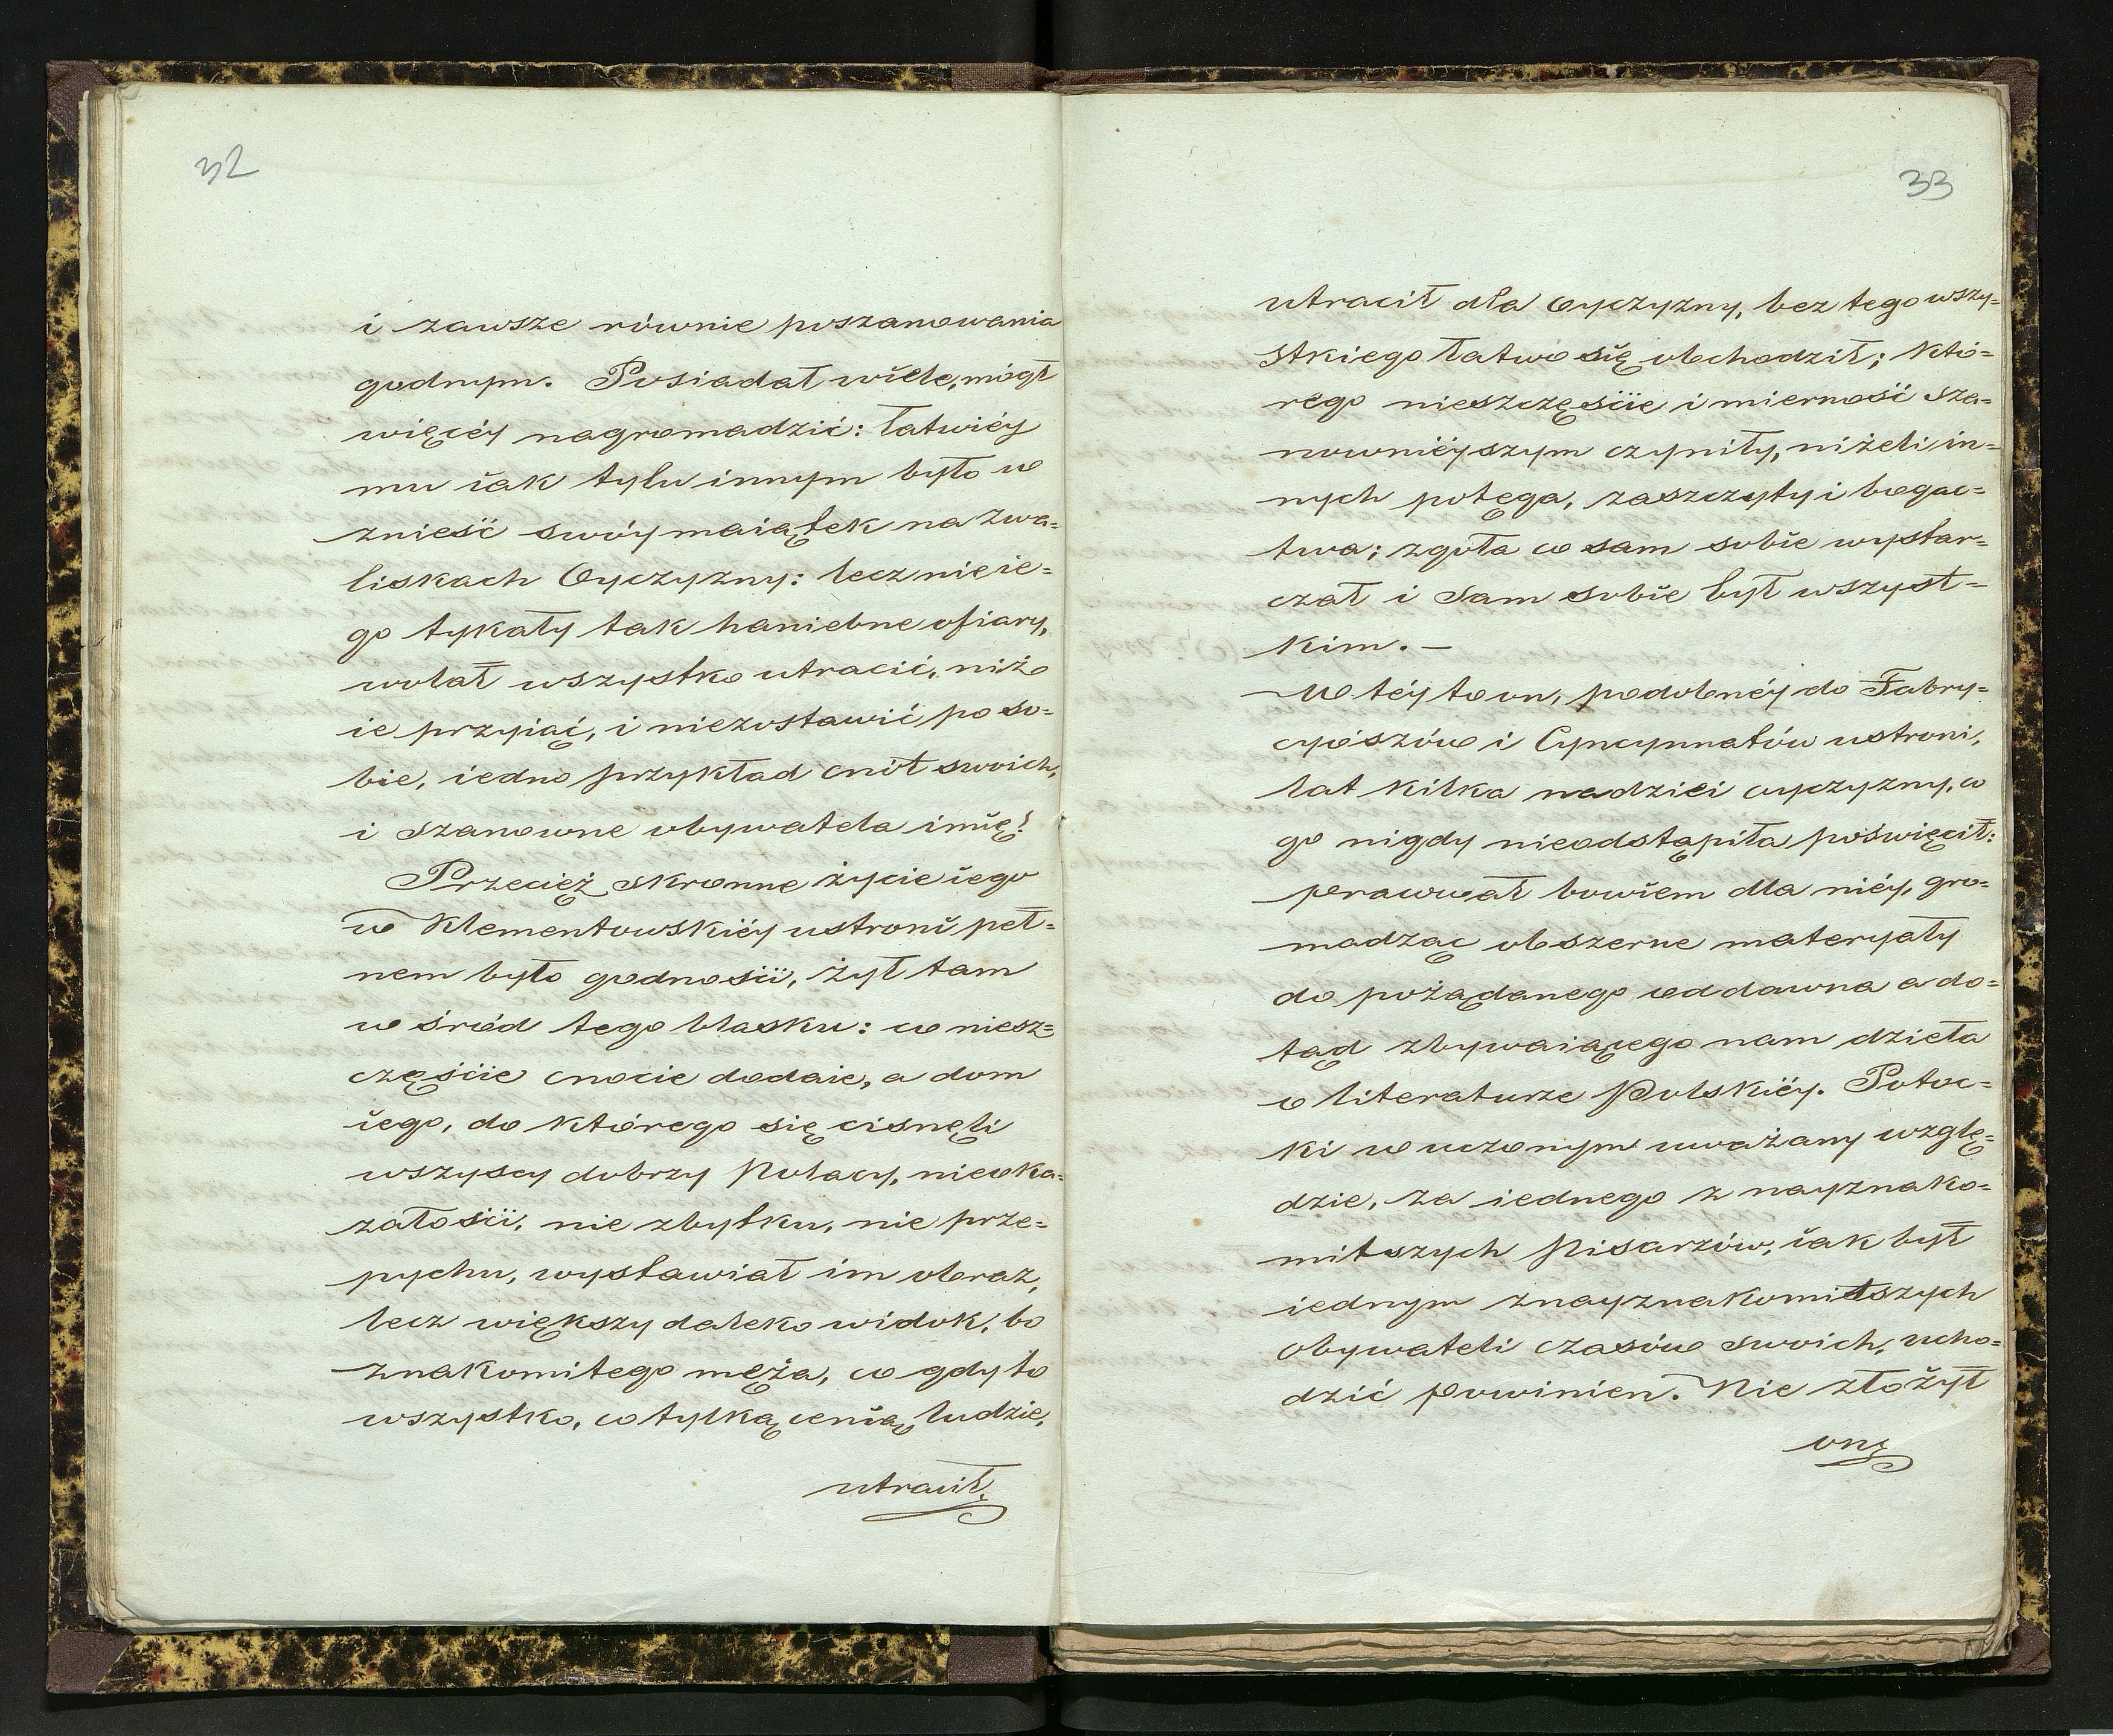 32
i zawsze równie poszanowania
godnym. Posiadał wiele, mógł
więcéy nagromadzić: łatwiéy
mu iak tylu innym było w
znieść swóy maiątek na zwa=
liskach Oyczyzny: lecz nie ie=
go tykały tak haniebne ofiary,
wolał wszystko utracić, niżo
ie przyiąć, i niezostawić po so=
bie, iedno przykład cnót swoich,
i szanowne obywatela imię!
Przecież skromne życie iego
w Klementowskiéy ustroni peł=
nem było godności, żył tam
w śród tego blasku: co niesz=
częście cnocie dodaie, a dom
iego, do którego się cisnęli
wszyscy dobrzy Polacy, nieoka=
załości, nie zbytku, nie prze=
pychu, wystawiał im obraz,
lecz większy daleko widok, bo
znakomitego męża, co gdy to
wszystko, co tylką cenią, ludzie,
utracił,
33
utracił dla oyczyzny, bez tego wszy=
stkiego łatwo się obchodził; któ=
rego nieszczęście i mierność sza=
nownieyszym czyniły, niżeli in=
nych potęga, zaszczyty i bogac=
twa; zgoła co sam sobie wystar=
czał i sam sobie był wszyst=
kim. –
W téy to on, podobnéy do Fabry=
cyószów i Cyncynnatów ustroni,
lat kilka nadziei oyczyzny, co
go nigdy nieodstąpiła poświęcił:
pracował bowiem dla niéy, gro=
madząc obszerne materyały
do pożądanego od dawna a do=
tąd zbywaiącego nam dzieła
o literaturze Polskiéy. Potoc=
ki w uczonym uważany wzglę=
dzie, za iednego z nayznako=
mitszych Pisarzów, iak był
iednym znayznakomitszych
obywateli czasów swoich, ucho=
dzić powinien. Nie złożył
on,